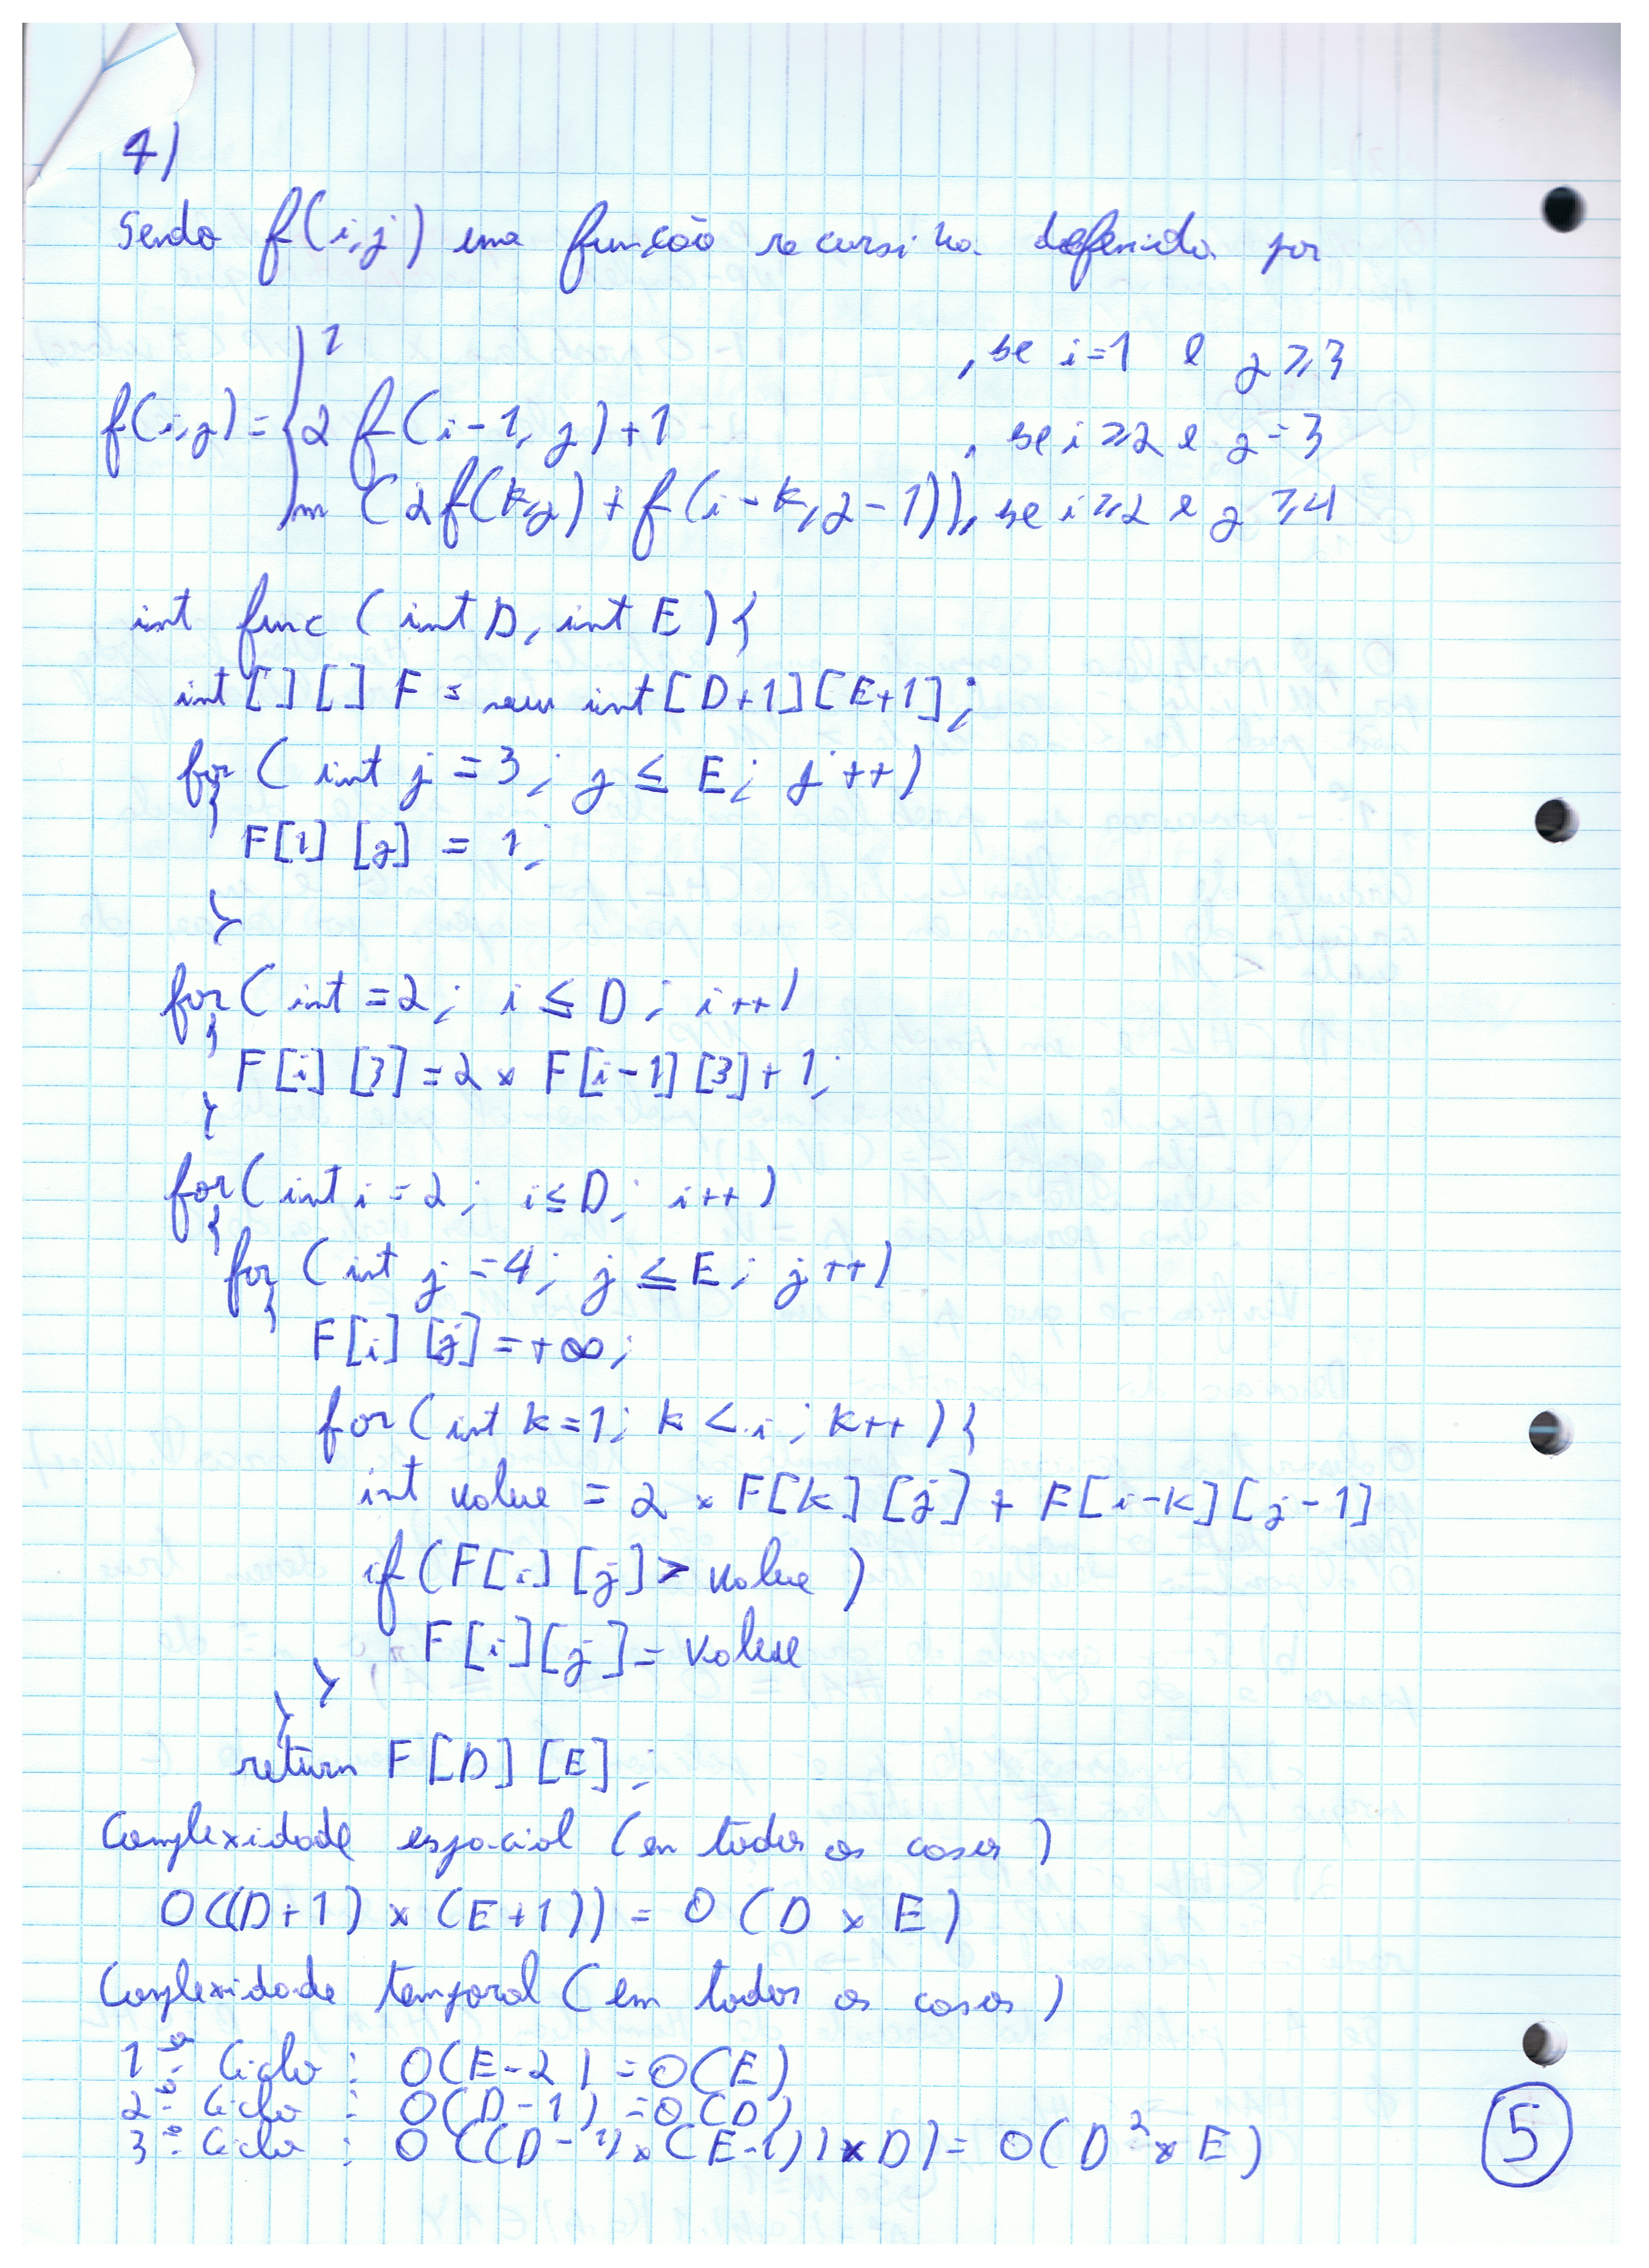 4)
Sendo f(i,j) uma função recursiva definida por
1 , se i=1 e j ≥ 3
f(i,j) = { 2 f(i-1, j) + 1 , se i ≥ 2 e j = 3
m (2f(k,j) + f(i-k, j-1)), se i ≥ 2 e j ≥ 4
int func (int D, int E) {
int [ ] [ ] F = new int [D+1] [E+1];
for ( int j = 3; j ≤ E; j++)
{
F[1] [j] = 1;
}
for ( int = 2; i ≤ D; i++)
{
F[i] [3] = 2 × F[i-1] [3] + 1;
}
for ( int i = 2; i ≤ D; i++)
{
for ( int j = 4; j ≤ E; j++)
{
F[i] [j] = +∞;
for (int k=1; k < i; k++) {
int value = 2 × F[k] [j] + F[i-k] [j-1]
if (F[i] [j] > value )
F[i][j] = value
}
}
return F[D] [E];
Complexidade espacial (em todos os casos)
O((D+1) × (E+1)) = O (D × E)
Complexidade temporal (em todos os casos)
1º Ciclo : O(E-2) = O(E)
2º Ciclo : O(D-1) = O(D)
3º Ciclo : O ((D-1) × (E-1)) × D) = O(D² × E)
5